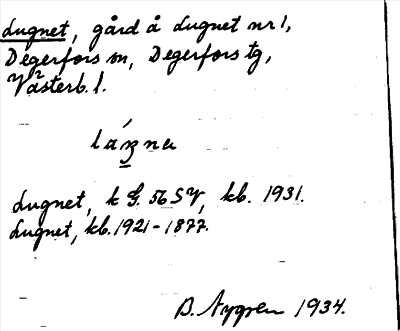 Lugnet, gård å Lugnet nr 1,
Degerfors sn, Degerfors tg,
Västerb. l.
Lugnet, k G. 56 SV, kb. 1931.
Lugnet, kb. 1921-1877.
B. Nygren 1934.